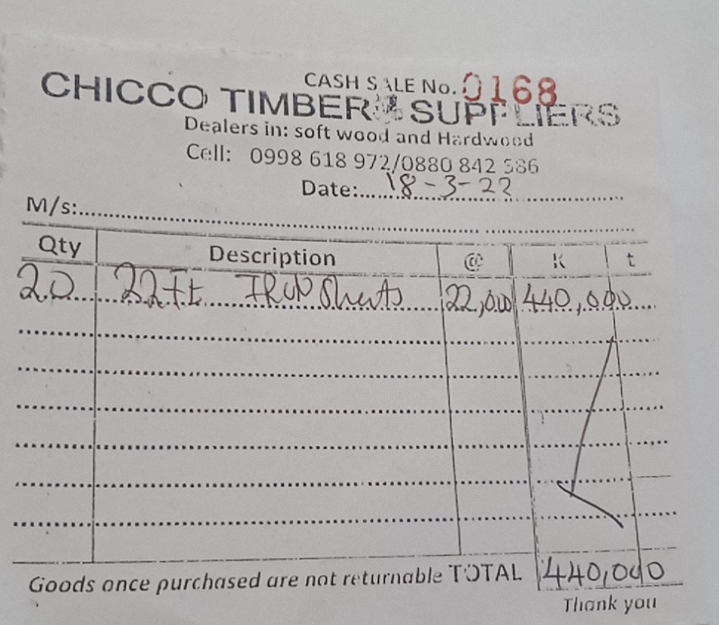 CASH SALE No. 0168
CHICCO TIMBER SUPPLIERS
Dealers in: soft wood and Hardwood
Cell: 0998 618 972/0880 842 586
Date: 18-3-22
M/s:
Qty Description @ K t
20 22ft IRON Sheets 22,000 440,000
Goods once purchased are not returnable TOTAL 440,000
Thank you